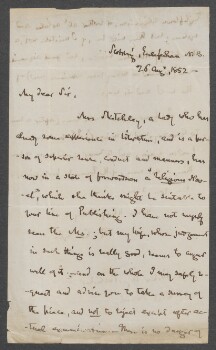 26 Aug, 1852
My dear Sir,
Miss Sketchley, a lady who has
already some experience in literature, and is a per-
son of superior sense, conduct and manners, has
now in a state of forwardness a "Religious No-
vel", which she thinks might be suitable to
your line of Publishing. I have not myself
seen the MS.; but my wife, whose judgment
in such things is really good, seems to augur
well of it, and on the whole I may safely re-
quest and advise you to take a survey of
the piece, and not to reject except after ac-
tual examination. There is no danger of